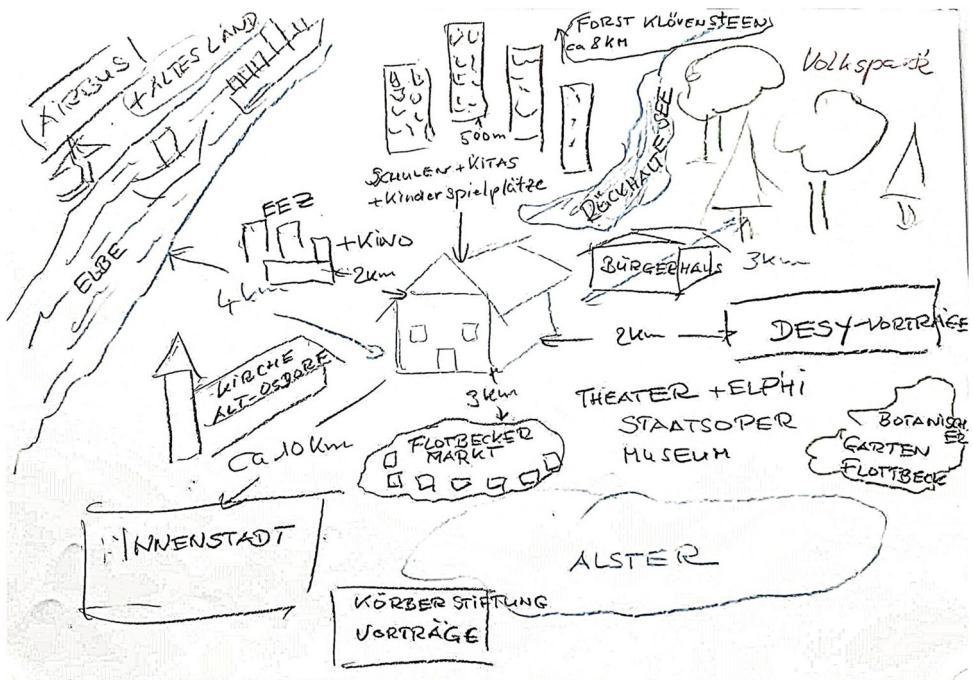 AIRBUS
+ ALTES LAND
FORST KLÖVENSTEEN
ca 8 KM
Volkspark
500m
SCHULEN + KITAS
+ Kinderspielplätze
RÜCKHALTESEE
EEZ
+ KINO
2km
ELBE
4km
BÜRGERHAUS
3km
2km
DESY-VORTRÄGE
KIRCHE
ALT-OSDORF
3km
THEATER + ELPHI
STAATSOPER
MUSEUM
BOTANISCHER
GARTEN
FLOTTBECK
FLOTBECKER
MARKT
ca 10 Km
INNENSTADT
ALSTER
KÖRBER STIFTUNG
VORTRÄGE